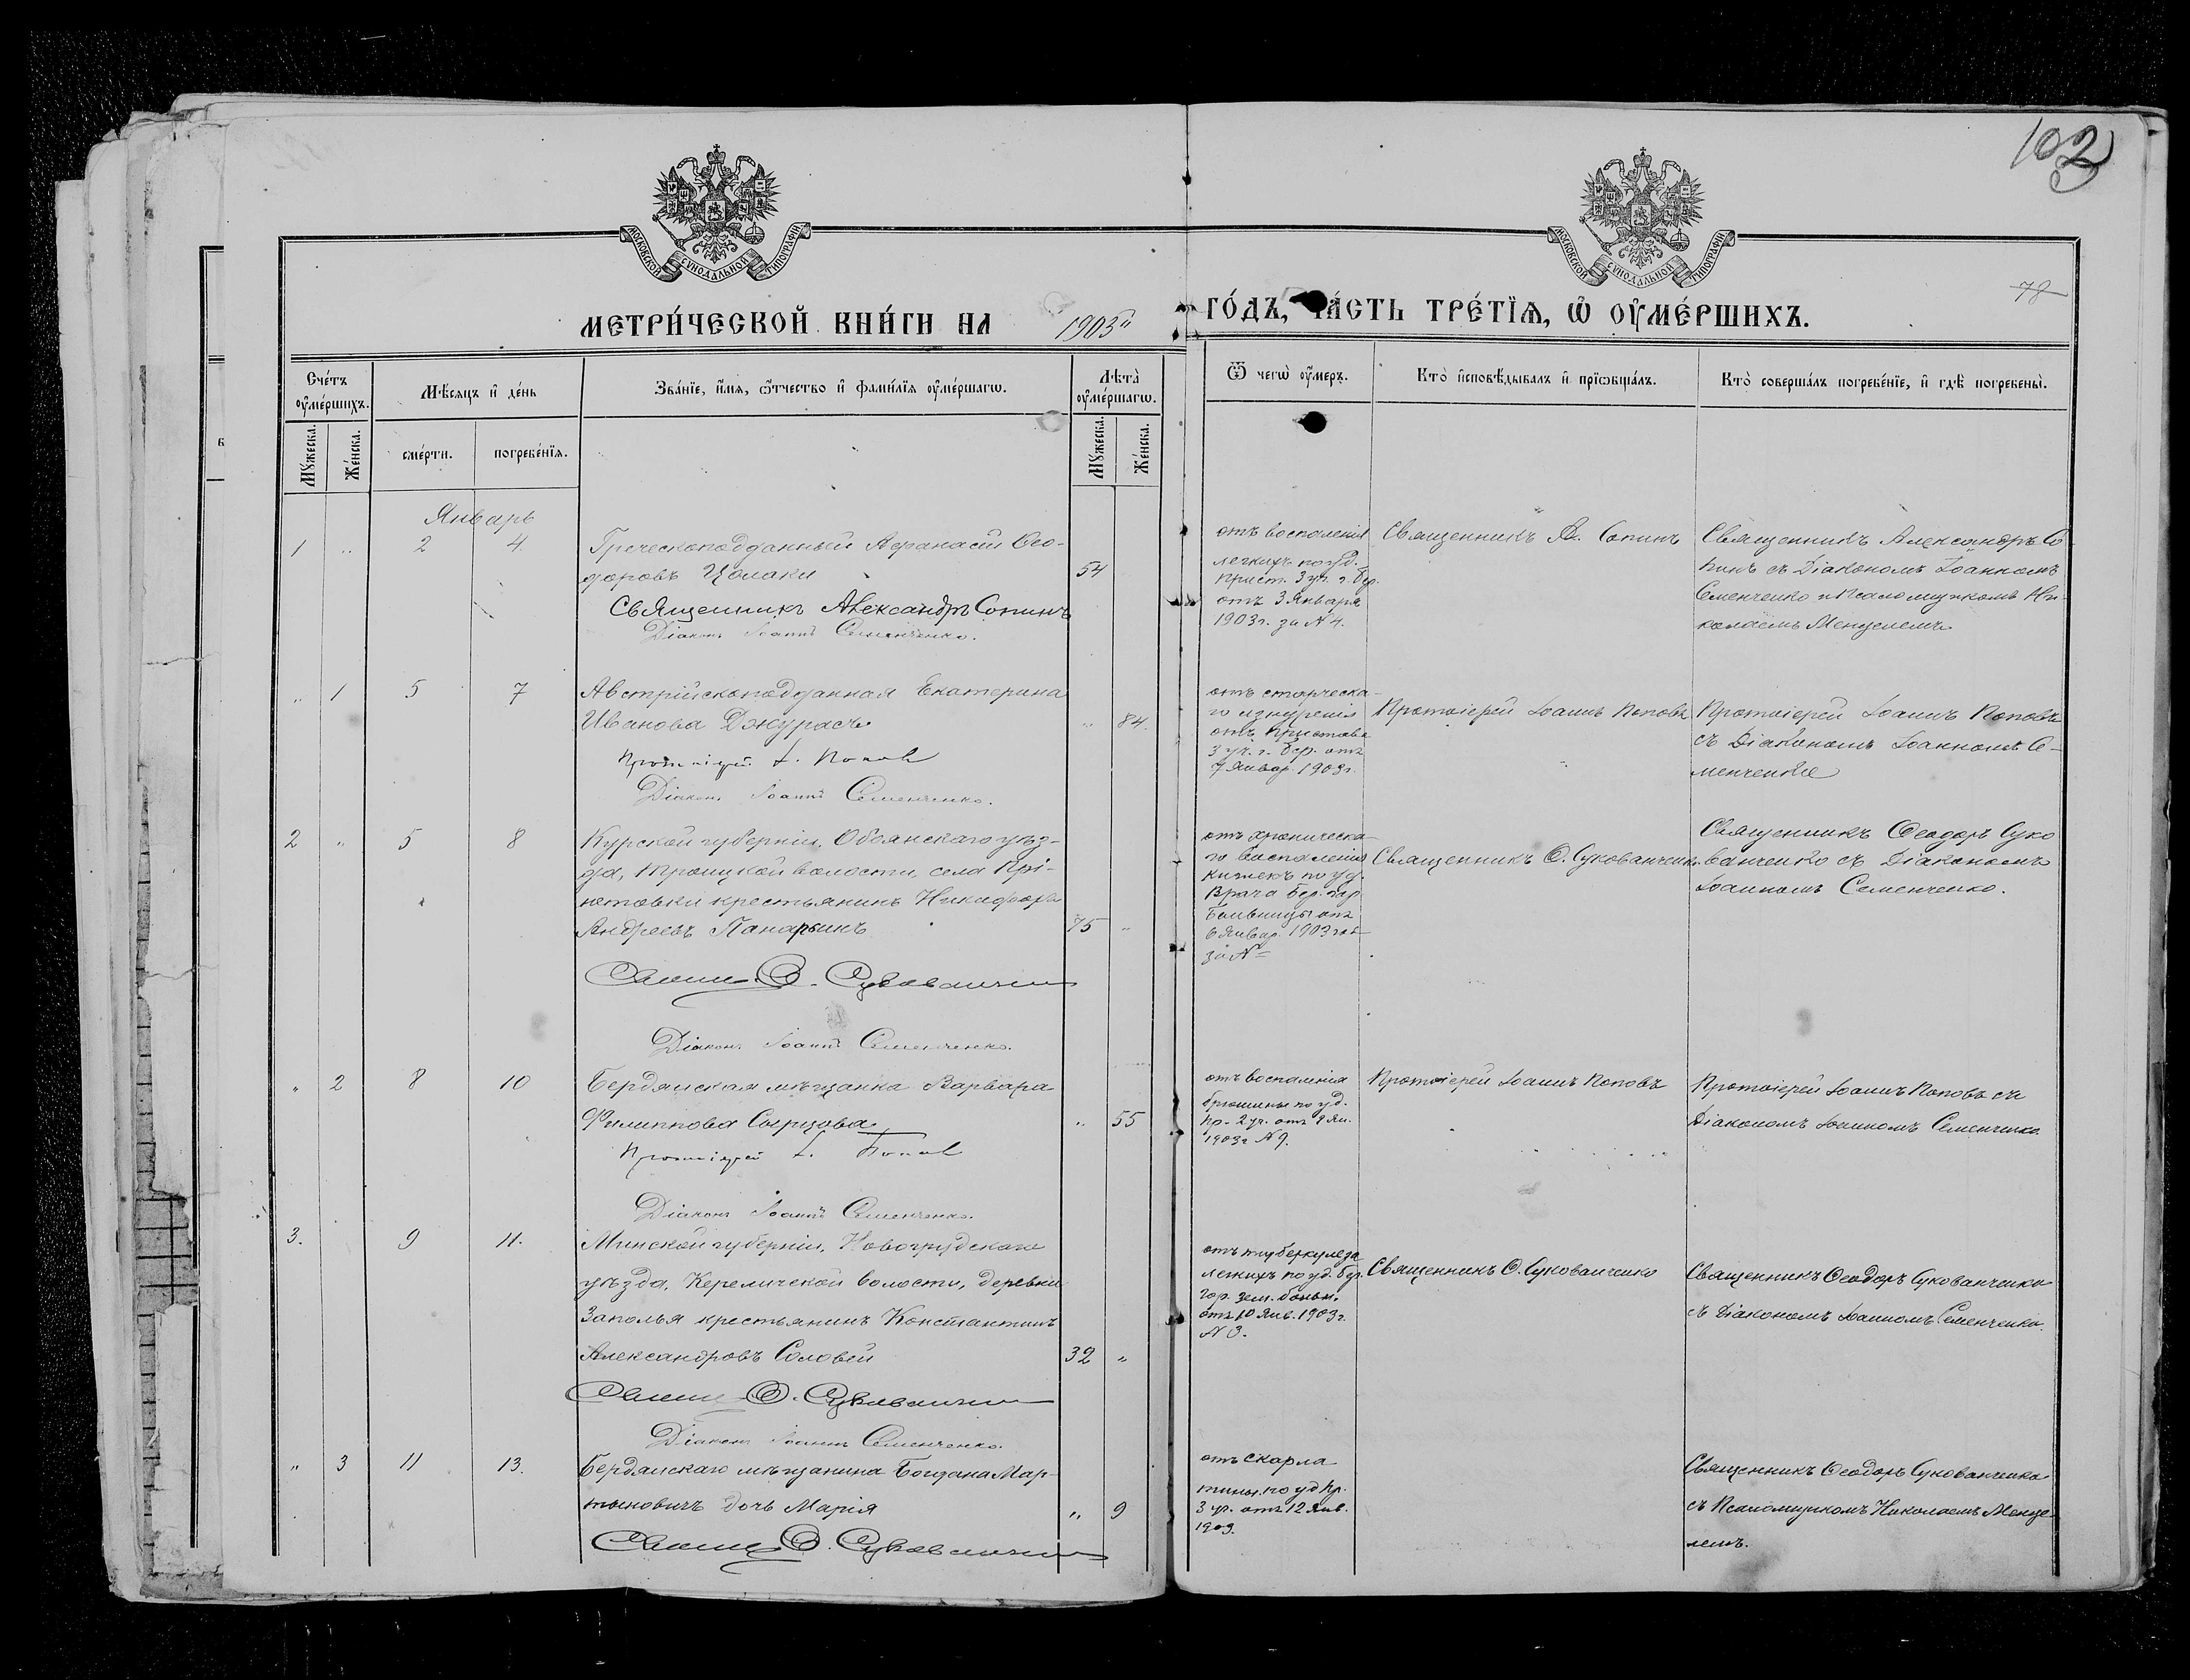 102
МОСКОВСКОЙ СѴНОДАЛЬНОЙ ТИПОГРАФІИ
МОСКОВСКОЙ СѴНОДАЛЬНОЙ ТИПОГРАФІИ
78
МЕТРИ́ЧЕСКОЙ КНИ́ГИ НА 1903й ГО́ДЪ, ЧА́СТЬ ТРЕ́ТЇѦ, Ѡ҆ ОУ҆МЕ́РШИХЪ.
Сче́тъ оу҆ме́ршихъ.
Мѣ́сяцъ и҆ де́нь
Зва́нїе, и҆́мя, ѻ҆́тчество и҆ фами́лїя оу҆ме́ршагѡ.
Лѣ́та оу҆ме́ршагѡ.
Ѿ чегѡ̀ оу҆́меръ.
Кто̀ и҆сповѣ́дывалъ и҆ прїѡбща́лъ.
Кто̀ соверша́лъ погребе́нїе, и҆ гдѣ̀ погребены̀.
Мꙋ́жеска.
Же́нска.
сме́рти.
погребе́нїя.
Мꙋ́жеска.
Же́нска.
Январь
1 " 2 4
Греческоподданный Афанасій Ѳео-
доровъ Цолаки
54
Священникъ Александръ Сопинъ
Діаконъ Іоаннъ Семенченко.
отъ воспаленія
легкихъ по уд.
Прист. 3 уч. г. Бер.
отъ 3 Января
1903 г. за № 4.
Священникъ Ал. Сопинъ
Священникъ Александръ Со
пинъ съ Діакономъ Іоанномъ
Семенченко и Псаломщикомъ Ни-
колаемъ Менцелемъ
" 1 5 7
Австрійскоподданная Екатерина
Иванова Джурасъ
" 84
Протоіерей І. Поповъ
Діаконъ Іоаннъ Семенченко.
отъ старческа-
го изнуренія
отъ Пристава
3 уч. г. Бер. отъ
7 Январ. 1903 г.
Протоіерей Іоаннъ Поповъ
Протоіерей Іоаннъ Поповъ
съ Діакономъ Іоанномъ Се-
менченко
2 " 5 8
Курской губерніи, Обоянскаго уѣз-
да, Троицкой волости, села Прі-
нетовки крестьянинъ Никифоръ
Андреевъ Панарьинъ
75 "
Свящ. Ѳ. Сукованченко
Діаконъ Іоаннъ Семенченко.
отъ хроническа-
го воспаленія
кишекъ по уд.
Врача Бер. гор.
Больницы отъ
6 Январ. 1903 года
за №
Священникъ Ѳ. Сукованченко
Священникъ Ѳеодоръ Суко
ванченко съ Діакономъ
Іоанномъ Семенченко.
" 2 8 10
Бердянская мѣщанка Варвара
Филиппова Сырцова
" 55
Протоіерей І. Поповъ
Діаконъ Іоаннъ Семенченко.
отъ воспаленія
брюшины по уд.
Пр. 2 уч. отъ 9 Ян.
1903 г. № 9.
Протоіерей Іоаннъ Поповъ
Протоіерей Іоаннъ Поповъ съ
Діакономъ Іоанномъ Семенченко
3. 9 11.
Минской губерніи, Новогрудскаго
уѣзда, Кереличской волости, деревни
Заполья крестьянинъ Константинъ
Александровъ Соловей
32 "
Свящ. Ѳ. Сукованченко
Діаконъ Іоаннъ Семенченко.
отъ туберкулеза
легкихъ по уд. Бер.
Гор. Зем. больн.
отъ 10 Янв. 1903 г.
№ 3.
Священникъ Ѳ. Сукованченко
Священникъ Ѳеодоръ Сукованченко
съ Діакономъ Іоанномъ Семенченко.
" 3 11 13.
Бердянскаго мѣщанина Богдана Мар-
тыновичъ дочь Марія
" 9
Свящ. Ѳ. Сукованченко
отъ скарла
тины по уд Пр.
3 уч. отъ 12 Янв.
1903.
Священникъ Ѳеодоръ Сукованченко
съ Псаломщикомъ Николаемъ Менце-
лемъ.